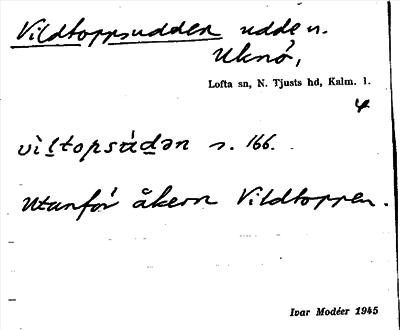 Vildtoppsudden udde n.
Uknö,
Lofta sn, N. Tjusts hd, Kalm. l.
4
s. 166.
Utanför åkern Vildtoppen.
Ivar Modéer 1945